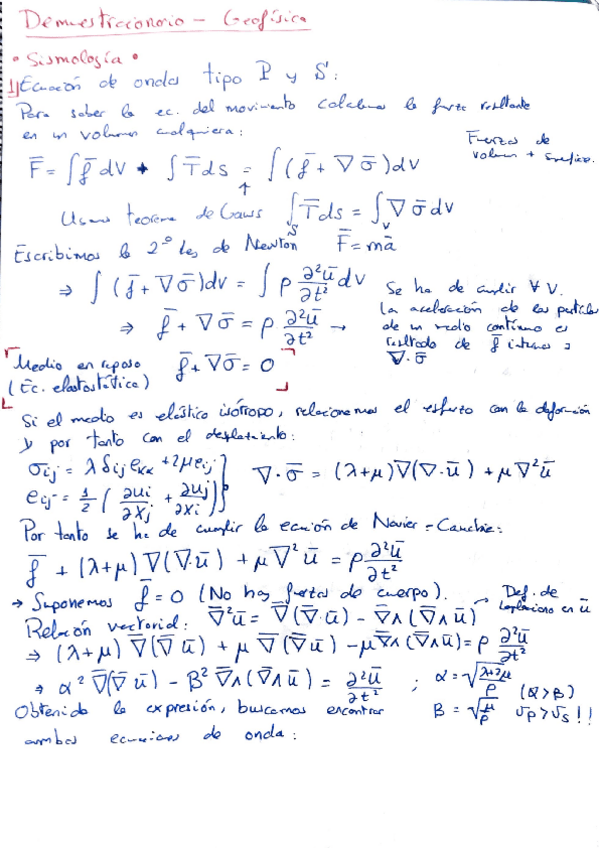 Demostracionario - Geofísica
• Sismología •
1) Ecuación de ondas tipo P y S:
Para saber la ec. del movimiento calculamos la fuerza resultante
en un volumen cualquiera:
F̄ = ∫ f̄ dV + ∫ T̄ ds = ∫ (f̄ + ∇ σ̄) dV
Fuerzas de
volumen + superficie.
Usamos teorema de Gauss ∫_S T̄ ds = ∫_V ∇ σ̄ dV
Escribimos la 2º ley de Newton F̄ = mā
⇒ ∫ (f̄ + ∇σ̄) dV = ∫ ρ ∂²ū/∂t² dV
⇒ f̄ + ∇σ̄ = ρ ∂²ū/∂t² →
Se ha de cumplir ∀ V.
La aceleración de las partículas
de un medio continuo es
resultado de f̄ internas
∇·σ̄
Medio en reposo f̄ + ∇σ̄ = 0
(Ec. elastostática)
Si el medio es elástico isótropo, relacionamos el esfuerzo con la deformación
y por tanto con el desplazamiento:
σij = λ δij eKK + 2μ eij
eij = 1/2 ( ∂ui/∂xj + ∂uj/∂xi )
∇·σ̄ = (λ+μ) ∇(∇·ū) + μ ∇²ū
Por tanto se ha de cumplir la ecuación de Navier - Cauchy:
f̄ + (λ+μ) ∇(∇·ū) + μ ∇² ū = ρ ∂²ū/∂t²
→ Suponemos f̄ = 0 (No hay fuerzas de cuerpo).
Def. de
laplaciano en ū
Relación vectorial: ∇̄²ū = ∇̄(∇̄·ū) - ∇̄∧(∇̄∧ū)
⇒ (λ+μ) ∇̄(∇̄ ū) + μ ∇̄(∇̄ū) - μ∇̄∧(∇̄∧ū) = ρ ∂²ū/∂t²
⇒ α² ∇̄(∇̄ ū) - B² ∇̄∧(∇̄∧ū) = ∂²ū/∂t² ; α = √((λ+2μ)/ρ) (α>B)
B = √(μ/ρ) vp > vs !!
Obtenida la expresión, buscamos encontrar
ambas ecuaciones de onda: